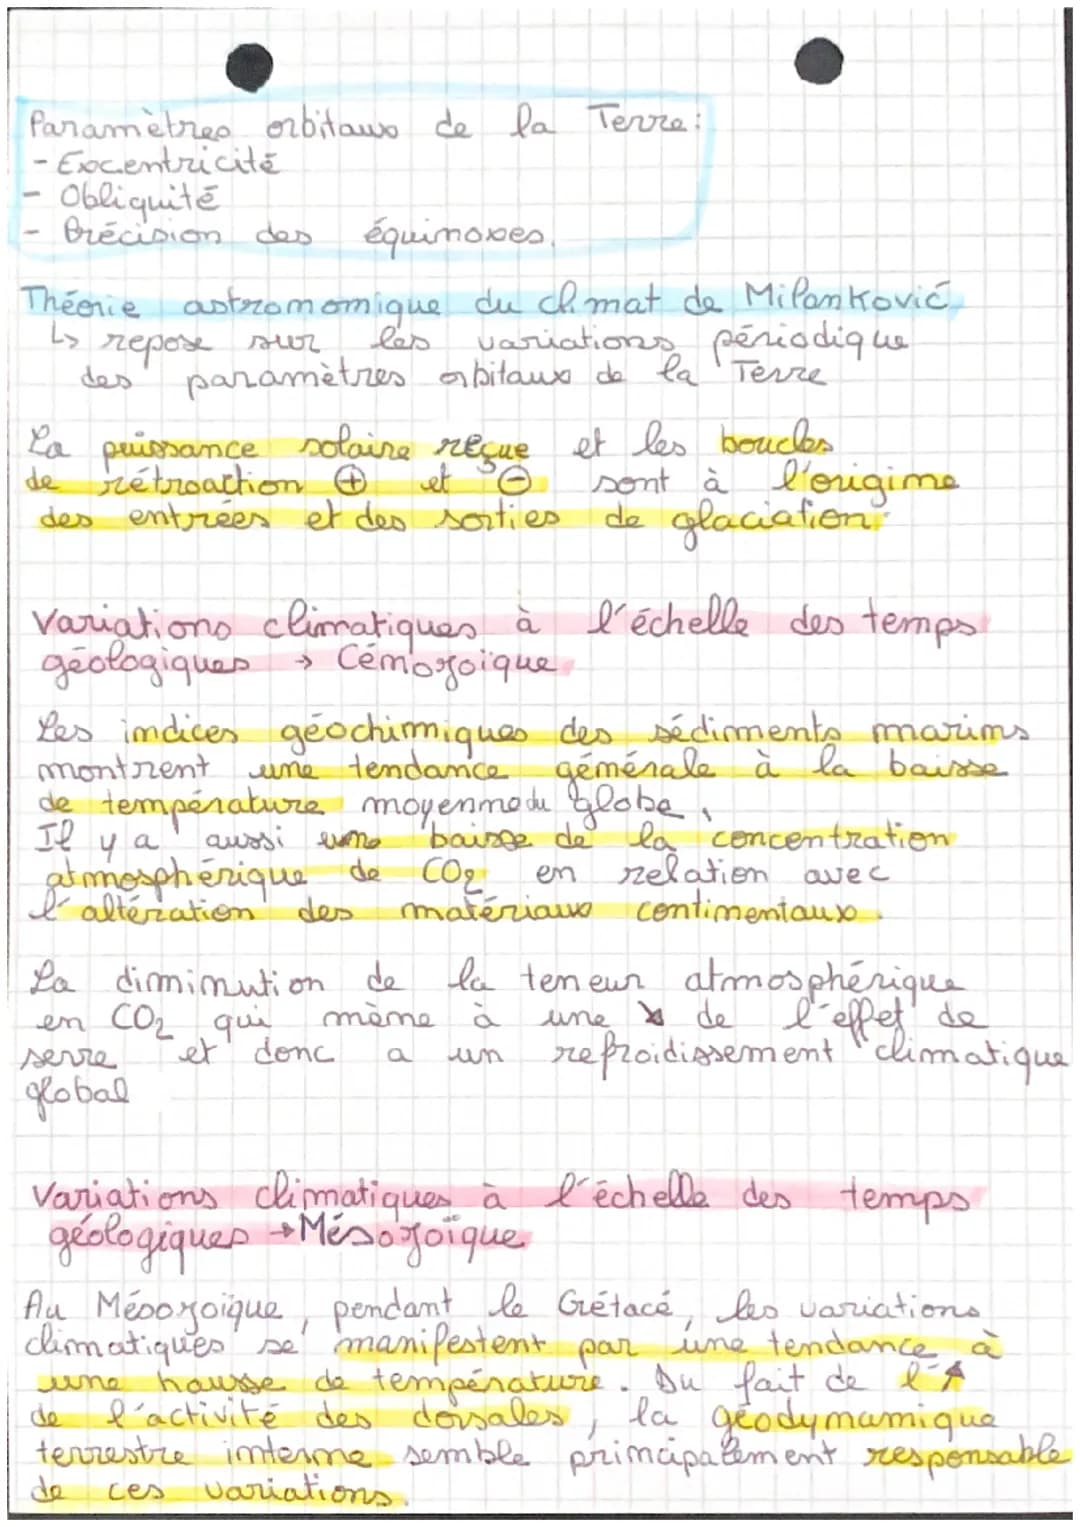 Paramètres orbitaux de la Terre:
- Excentricité
- Obliquité
- Précision des équinoxes.
Théorie astronomique du climat de Milanković
↳ repose sur les variations périodique
des paramètres orbitaux de la Terre
La puissance solaire reçue et les boucles
de rétroaction ⊕ et ⊖ sont à l'origine
des entrées et des sorties de glaciation.
Variations climatiques à l'échelle des temps
géologiques → Cénozoïque
Les indices géochimiques des sédiments marins
montrent une tendance générale à la baisse
de température moyenne du globe.
Il y a aussi une baisse de la concentration
atmosphérique de CO₂ en relation avec
l'altération des matériaux continentaux.
La diminution de la teneur atmosphérique
en CO₂ qui mène à une ↘ de l'effet de
serre et donc a un refroidissement climatique
global
Variations climatiques à l'échelle des temps
géologiques → Mésozoïque
Au Mésozoïque, pendant le Crétacé, les variations
climatiques se manifestent par une tendance à
une hausse de température. Du fait de l'↗
de l'activité des dorsales, la géodynamique
terrestre interne semble principalement responsable
de ces variations.